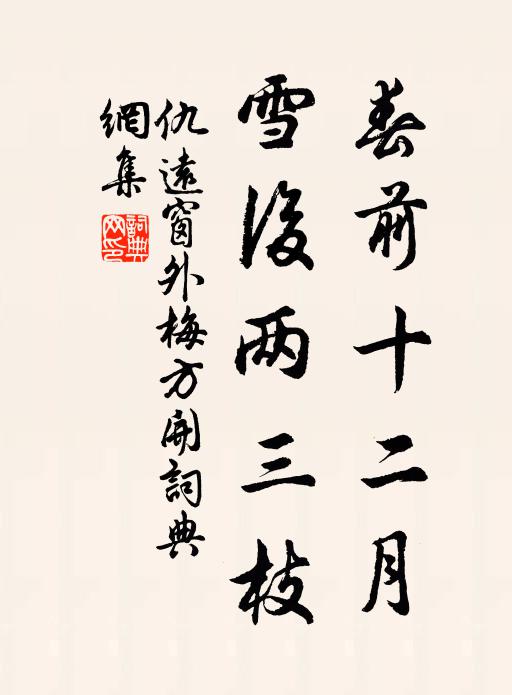 春前十二月
雪後两三枝
仇遠窗外梅方開詞典
網集
詞典
网印